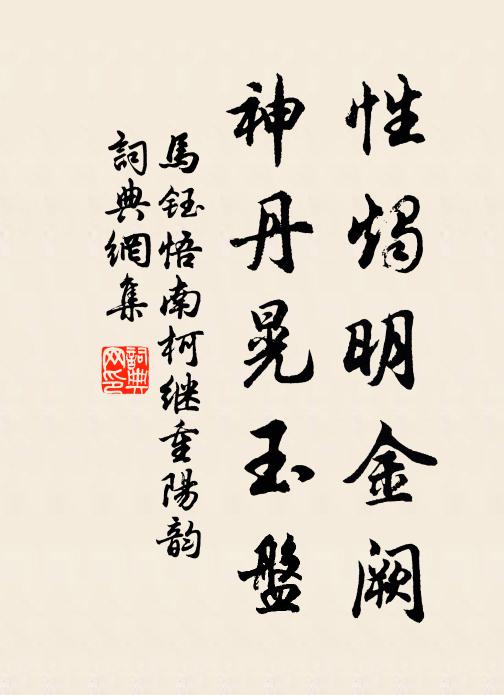 性燭明金闕
神丹晃玉盤
馬鈺悟南柯继重陽韵
詞典網集
詞典
网印